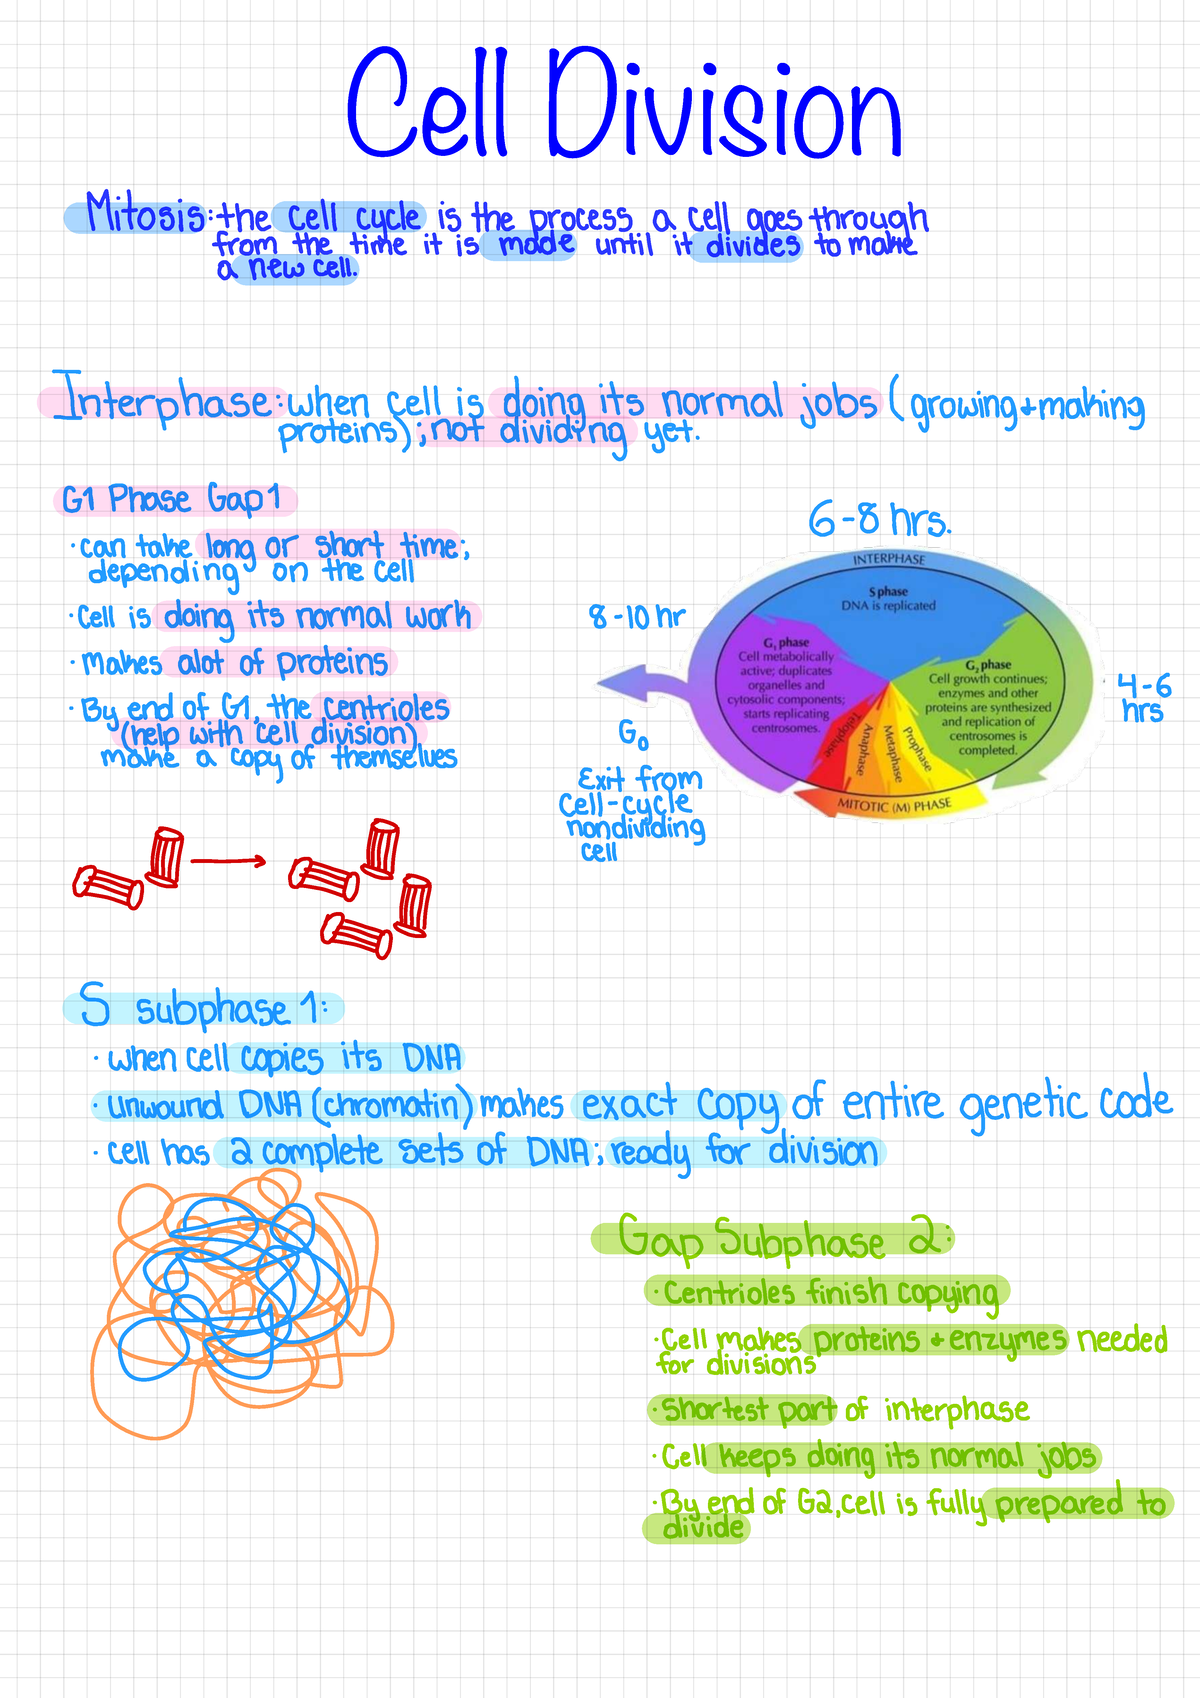 Cell Division
Mitosis: the cell cycle is the process a cell goes through
from the time it is made until it divides to make
a new cell.
Interphase: when cell is doing its normal jobs (growing + making
proteins); not dividing yet.
G1 Phase Gap 1
· can take long or short time;
depending on the cell
· Cell is doing its normal work
· Makes alot of proteins
· By end of G1, the centrioles
(help with cell division)
make a copy of themselves
6-8 hrs.
INTERPHASE
S phase
DNA is replicated
8-10 hr
G₁ phase
Cell metabolically
active; duplicates
organelles and
cytosolic components;
starts replicating
centrosomes.
G₂ phase
Cell growth continues;
enzymes and other
proteins are synthesized
and replication of
centrosomes is
completed.
4-6
hrs
Telophase
Anaphase
Metaphase
Prophase
MITOTIC (M) PHASE
G₀
Exit from
cell-cycle
nondividing
cell
S subphase 1:
· when cell copies its DNA
· unwound DNA (chromatin) makes exact copy of entire genetic code
· cell has 2 complete sets of DNA; ready for division
Gap Subphase 2:
· Centrioles finish copying
· Cell makes proteins + enzymes needed
for divisions
· Shortest part of interphase
· Cell keeps doing its normal jobs
· By end of G2, cell is fully prepared to
divide